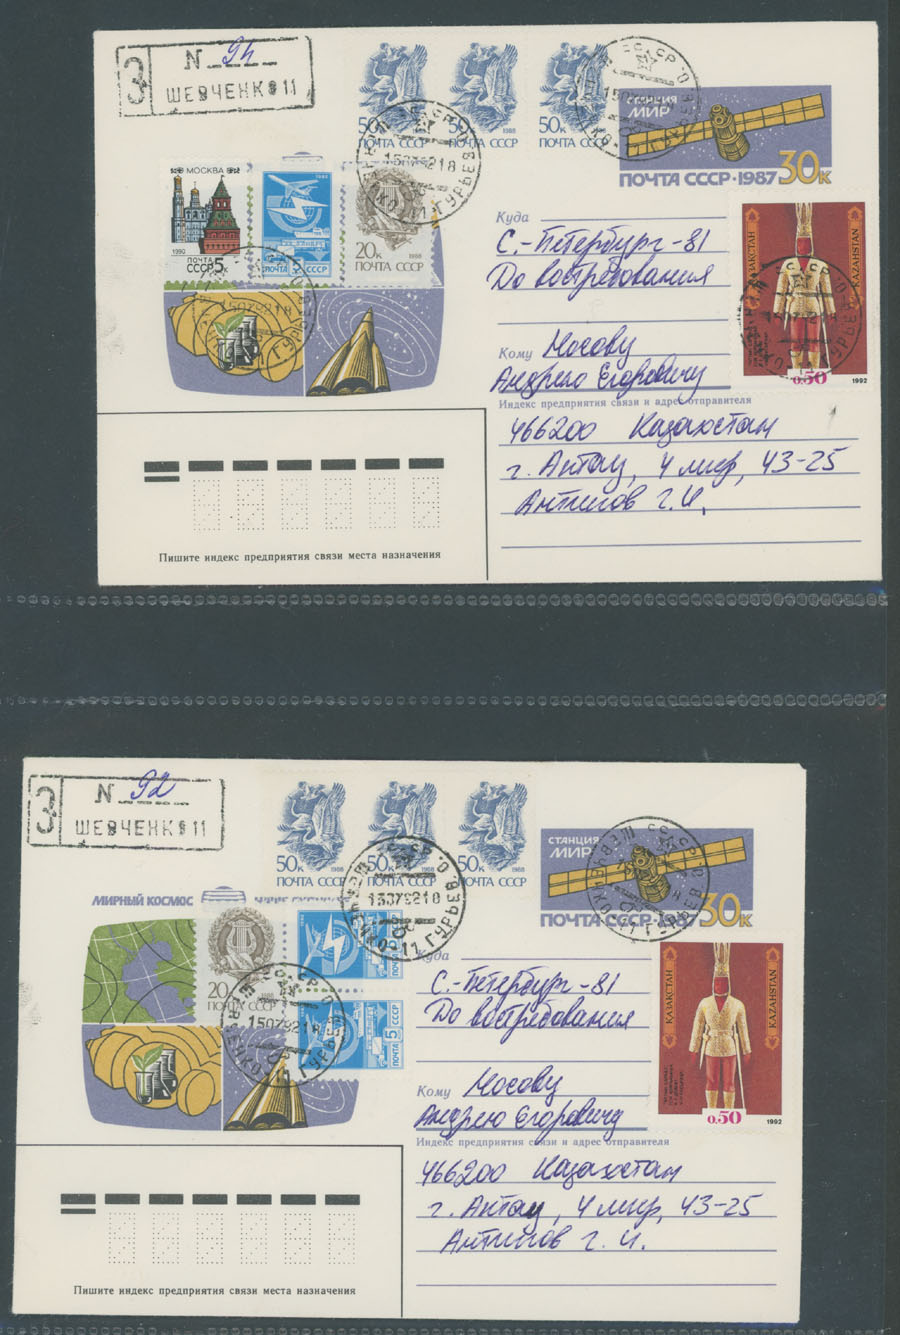 З
N 94
ШЕВЧЕНК 11
50к 1988
ПОЧТА СССР
50к 1988
ПОЧТА СССР
50к
ПОЧТА СССР
СТАНЦИЯ
МИР
ПОЧТА СССР·1987 30к
МОСКВА
1990
ПОЧТА
СССР 5к
1982
20к 1988
ПОЧТА СССР
15079218
ҚАЗАҚСТАН
KAZAHSTAN
0.50
1992
Куда С.-Петербург-81
До востребования
Кому Носову
Андрею Егоровичу
Индекс предприятия связи и адрес отправителя
466200 Казахстан
г. Актау, 4 мкр, 43-25
Антипов г.И.
Пишите индекс предприятия связи места назначения
З
N 92
ШЕВЧЕНК 11
50к 1988
ПОЧТА СССР
50к 1988
ПОЧТА СССР
50к 1988
ПОЧТА СССР
СТАНЦИЯ
МИР
ПОЧТА СССР·1987 30к
МИРНЫЙ КОСМОС
20к 1988
ПОЧТА СССР
ПОЧТА 5к СССР
13079218
15079218
ҚАЗАҚСТАН
KAZAHSTAN
0.50
1992
Куда С.-Петербург-81
До востребования
Кому Носову
Андрею Егоровичу
Индекс предприятия связи и адрес отправителя
466200 Казахстан
г. Актау, 4 мкр, 43-25
Антипов г.И.
Пишите индекс предприятия связи места назначения